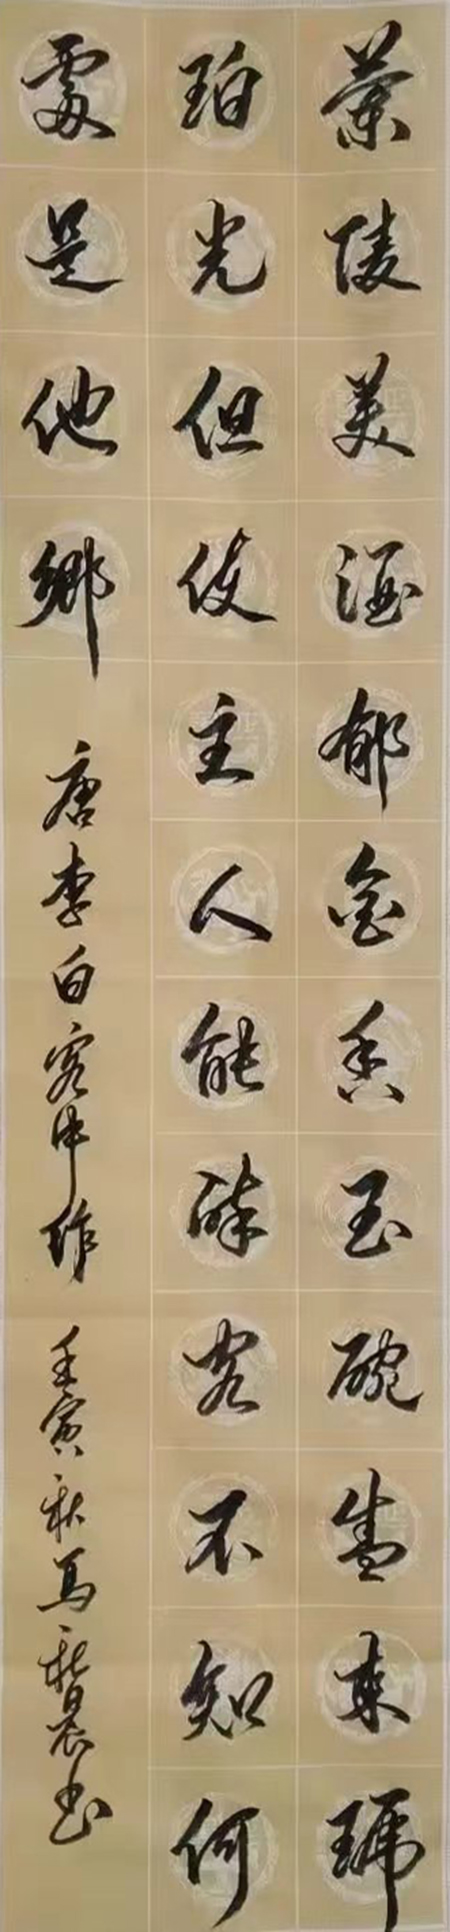 蘭陵美酒郁金香玉碗盛来琥
珀光但使主人能醉客不知何
處是他鄉
唐李白客中作
壬寅秋马晨书